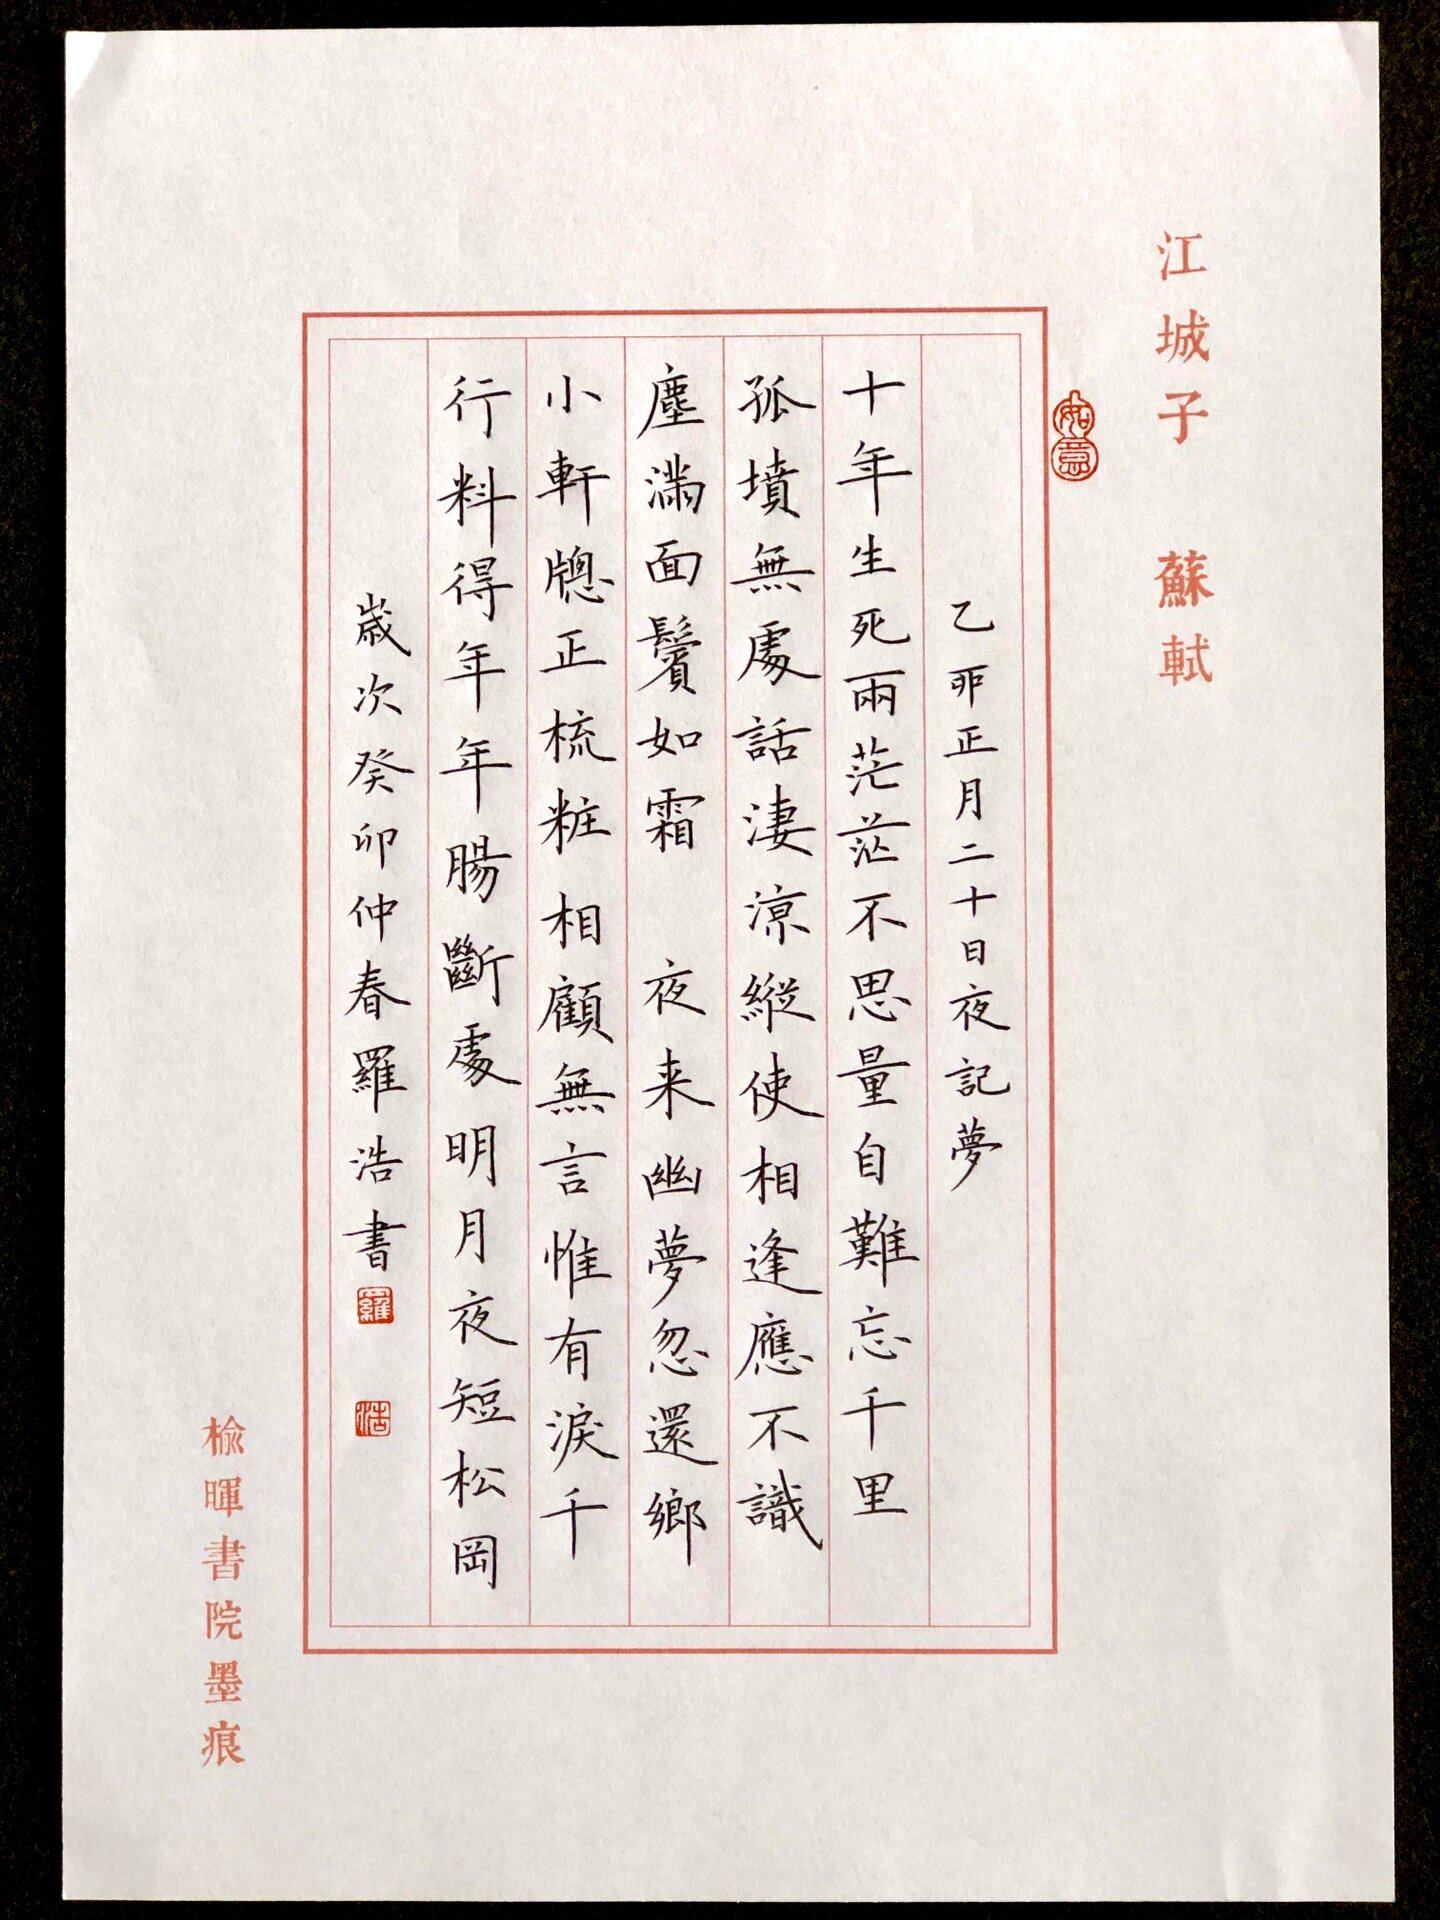 江城子 蘇軾
如意
乙丣正月二十日夜記夢
十年生死兩茫茫不思量自難忘千里
孤墳無處話淒涼縱使相逢應不識
塵滿面鬢如霜 夜来幽夢忽還鄉
小軒牕正梳粧相顧無言惟有淚千
行料得年年腸斷處明月夜短松岡
歲次癸卯仲春羅浩書
羅
浩
榆暉書院墨痕